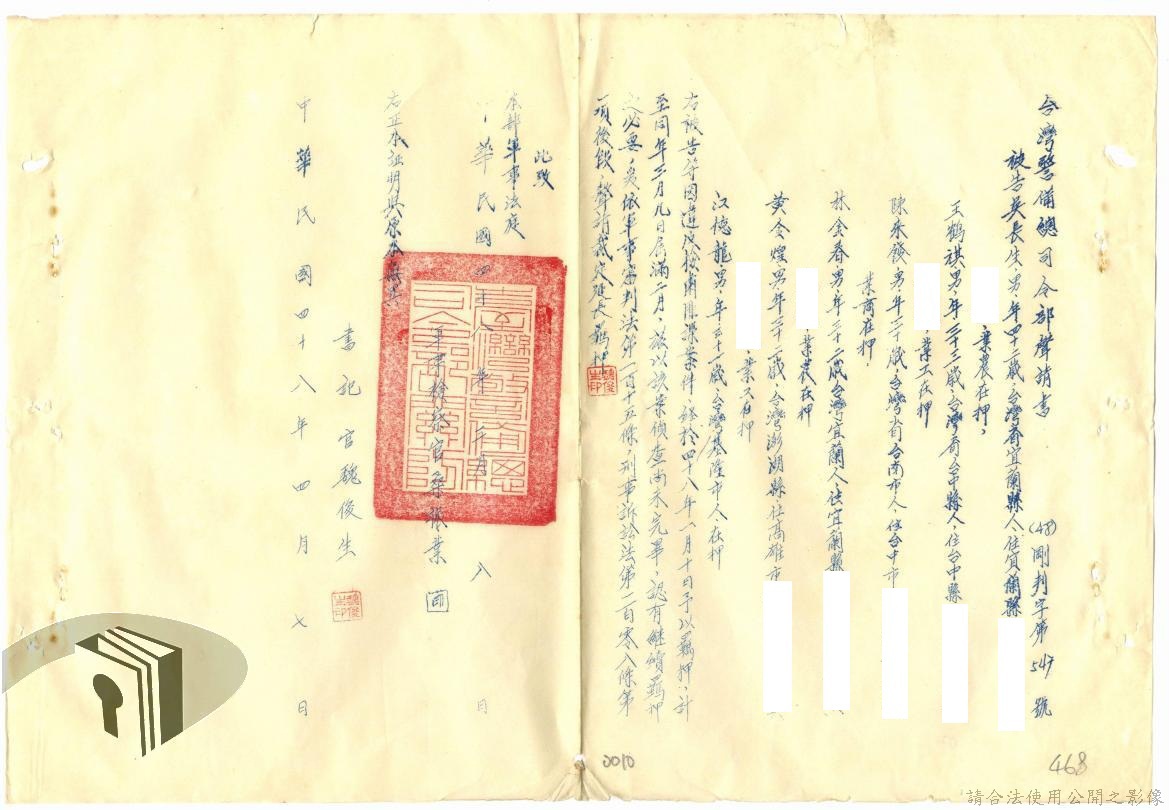 台灣警備總司令部聲請書
(48)剛判字第547號
被告吳長生、男、年四十二歲、台灣省宜蘭縣人、住宜蘭縣
、業農在押、
王鶴祺男、年三十三歲、台灣省台中縣人、住台中縣
、業工在押
陳來發、男、年三十歲台灣省台南市人、住台中市
業商在押、
林金春男、年三十二歲台灣宜蘭人住宜蘭縣
、業農在押
黃令煌男、年三十二歲、台灣澎湖縣住高雄市
、業工在押
江德龍、男、年三十一歲台灣基隆市人、在押
右被告等因違反檢肅匪諜案件、經於四十八年一月十日予以羈押、計
至同年三月九日屆滿二月、茲以該案偵查尚未完畢、認有繼續羈押
之必要、爰依軍事審判法第一百十五條、刑事訴訟法第一百零八條第
一項後段、聲請裁定延長羈押
此致
本部軍事法庭
中華民國四十八年三月 日
軍事檢察官 業 印
右正本証明與原本無異
書記官魏俊生
中華民國四十八年四月七日
魏俊生印
0010
468
請合法使用公開之影像